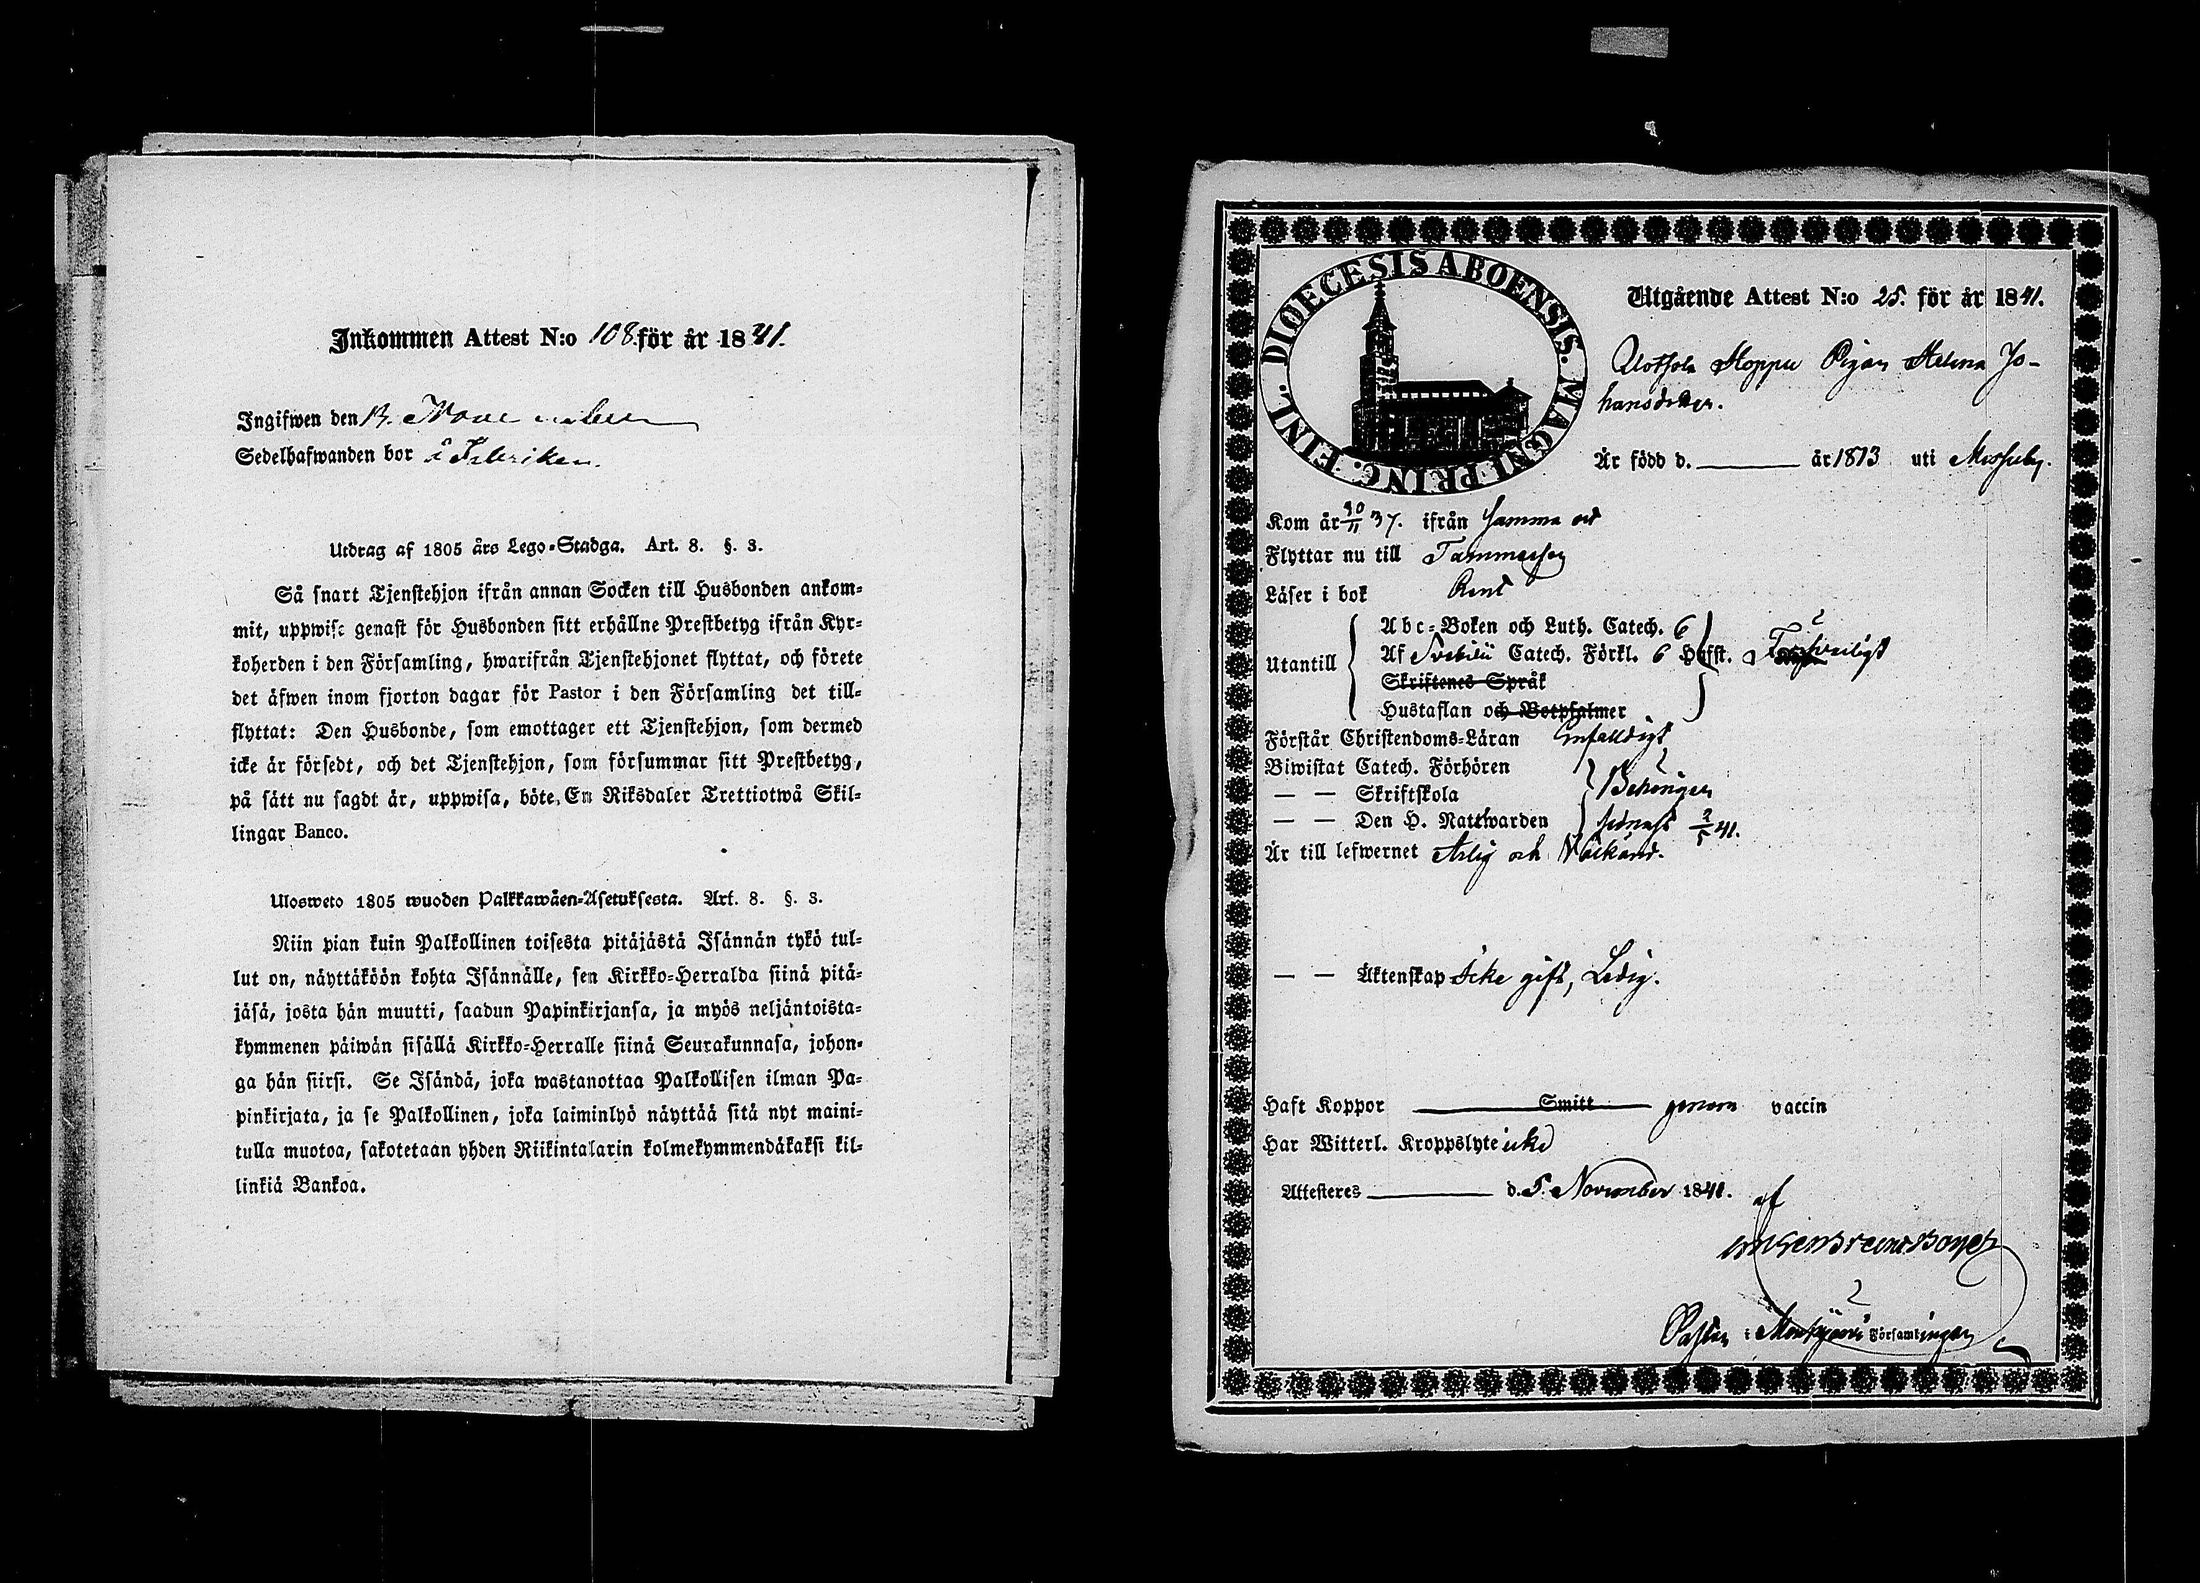 Inkommen Attest N:o 108 för år 1841.
Ingifwen den 13. November
Sedelhafwanden bor å Fabriken.
Utdrag af 1805 års Lego-Stadga. Art. 8. §. 3.
Så snart Tjenstehjon ifrån annan Socken till Husbonden ankom-
mit, uppwise genast för Husbonden sitt erhållne Prestbetyg ifrån Kyr-
koherden i den Församling, hwarifrån Tjenstehjonet flyttat, och förete
det äfwen inom fjorton dagar för Pastor i den Församling det till-
flyttat: Den Husbonde, som emottager ett Tjenstehjon, som dermed
icke är försedt, och det Tjenstehjon, som försummar sitt Prestbetyg,
på sätt nu sagdt är, uppwisa, böte, En Riksdaler Trettiotwå Skil-
lingar Banco.
Ulosweto 1805 wuoden Palkkawäen-Asetuksesta. Art. 8. §. 3.
Niin pian kuin Palkollinen toisesta pitäjästä Isännän tykö tul-
lut on, näyttäköön kohta Isännälle, sen Kirkko-Herralda siinä pitä-
jäsä, josta hän muutti, saadun Papinkirjansa, ja myös neljäntoista-
kymmenen päiwän sisällä Kirkko-Herralle siinä Seurakunnasa, johon-
ga hän siirsi. Se Isändä, joka wastanottaa Palkollisen ilman Pa-
pinkirjata, ja se Palkollinen, joka laiminlyö näyttää sitä nyt maini-
tulla muotoa, sakotetaan yhden Riikintalarin kolmekymmendäkaksi kil-
linkiä Bankoa.
DIOECESIS ABOENSIS. MAGNI PRINC. FINL.
Utgående Attest N:o 25. för år 1841.
Hoppu Pigan Helena Jo-
hansdotter.
Är född d. år 1813 uti
Kom år 10/11 37. ifrån samma ort
Flyttar nu till Tammerfors
Läser i bok Rent
Utantill
Abc-Boken och Luth. Catech. 6
Af Svebilii Catech. Förkl. 6 Hufst. Försvarligt
Skriftenes Språk
Hustaflan och Botpsalmer
Förstår Christendoms-Läran Enfalldigt
Biwistat Catech. Förhören
— — Skriftskola Behörigen
— — Den H. Nattwarden senast 2/5 41.
Är till lefwernet Ärlig och Välkänd.
— — Äktenskap Icke gift, Ledig.
Haft Koppor Smitt genom vaccin
Har Witterl. Kroppslyte icke
Attesteres d. 5. November 1841. af
Pastor i Församlingen